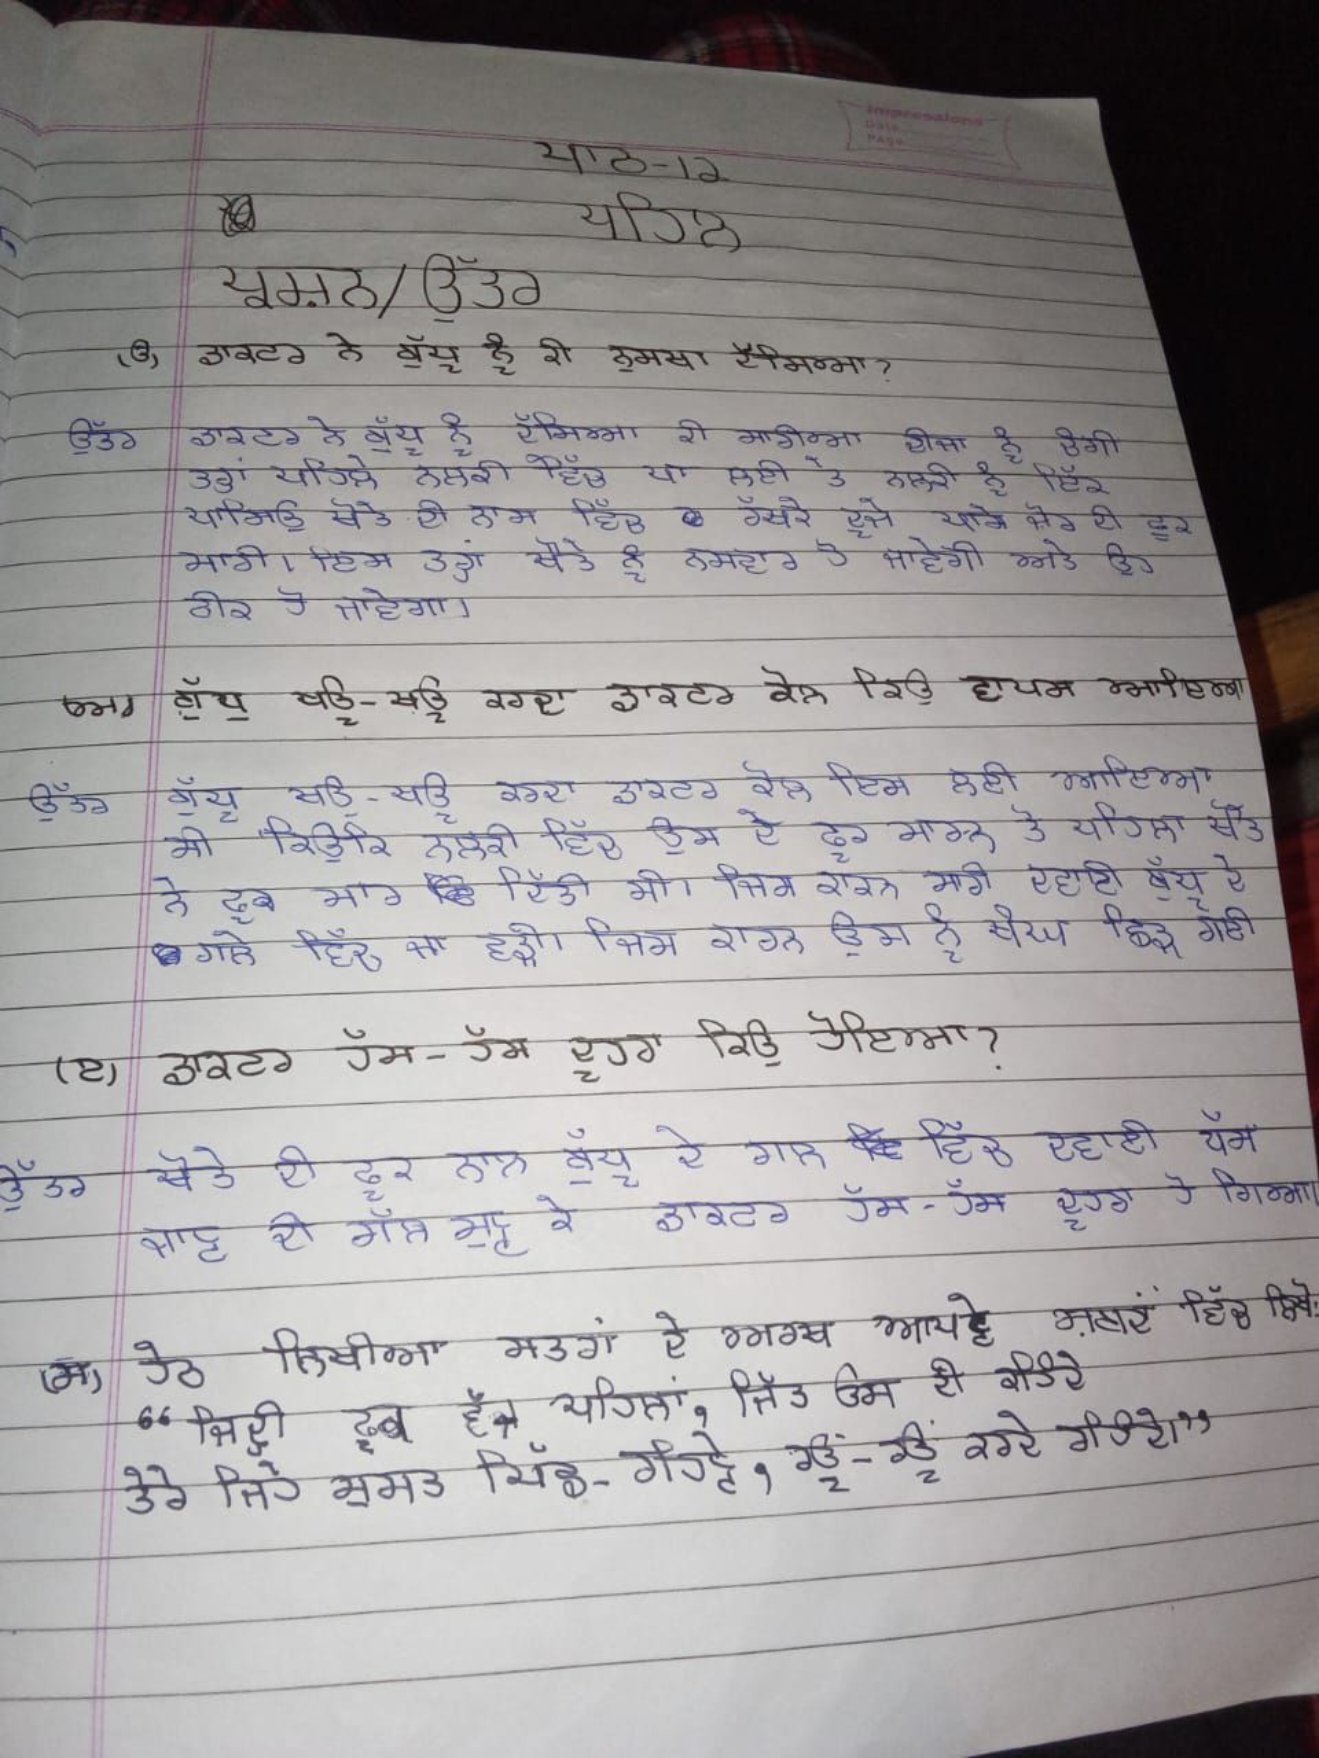 Impressions
Date
Page
ਪਾਠ-੧੨
ਪਹਿਲ
ਪ੍ਰਸ਼ਨ/ਉੱਤਰ
(ੳ) ਡਾਕਟਰ ਨੇ ਬੁੱਧੂ ਨੂੰ ਕੀ ਨੁਸਖਾ ਦੱਸਿਆ?
ਉੱਤਰ ਡਾਕਟਰ ਨੇ ਬੁੱਧੂ ਨੂੰ ਦੱਸਿਆ ਕੀ ਸਾਰੀਆ ਚੀਜਾ ਨੂੰ ਚੰਗੀ
ਤਰ੍ਹਾਂ ਪਹਿਲੇ ਨਲਕੀ ਵਿੱਚ ਪਾ ਲਈ ਤੇ ਨਲਕੀ ਨੂੰ ਇੱਕ
ਪਾਸਿਉ ਖੋਤੇ ਦੀ ਨਾਸ ਵਿੱਚ ਰੱਖਕੇ ਦੂਜੇ ਪਾਸੇ ਜੋਰ ਦੀ ਫੂਕ
ਮਾਰੀ। ਇਸ ਤਰ੍ਹਾਂ ਖੋਤੇ ਨੂੰ ਨਸਵਾਰ ਹੋ ਜਾਵੇਗੀ ਅਤੇ ਉਹ
ਠੀਕ ਹੋ ਜਾਵੇਗਾ।
ਬੁੱਧੂ ਖਊਂ-ਖਊਂ ਕਰਦਾ ਡਾਕਟਰ ਕੋਲ ਕਿਉ ਵਾਪਸ ਆਇਆ
ਉੱਤਰ ਬੁੱਧੂ ਖਊ-ਖਊ ਕਰਦਾ ਡਾਕਟਰ ਕੋਲ ਇਸ ਲਈ ਆਇਆ
ਸੀ ਕਿਉਕਿ ਨਲਕੀ ਵਿੱਚ ਉਸ ਦੇ ਫੂਕ ਮਾਰਨ ਤੋ ਪਹਿਲਾ ਖੋਤੇ
ਨੇ ਫੂਕ ਮਾਰ ਦਿੱਤੀ ਸੀ। ਜਿਸ ਕਾਰਨ ਸਾਰੀ ਦਵਾਈ ਬੁੱਧੂ ਦੇ
ਗਲੇ ਵਿੱਚ ਜਾ ਵੜੀ। ਜਿਸ ਕਾਰਨ ਉਸ ਨੂੰ ਖੰਘ ਛਿੜ ਗਈ
(ੲ) ਡਾਕਟਰ ਹੱਸ-ਹੱਸ ਦੂਹਰਾ ਕਿਉ ਹੋਇਆ?
ਉੱਤਰ ਖੋਤੇ ਦੀ ਫੂਕ ਨਾਲ ਬੁੱਧੂ ਦੇ ਗਲ ਵਿੱਚ ਦਵਾਈ ਧੱਸ
ਜਾਣ ਦੀ ਗੱਲ ਸੁਣ ਕੇ ਡਾਕਟਰ ਹੱਸ-ਹੱਸ ਦੂਹਰਾ ਹੋ ਗਿਆ।
(ਸ) ਹੇਠ ਲਿਖੀਆ ਸਤਰਾਂ ਦੇ ਅਰਥ ਆਪਣੇ ਸ਼ਬਦਾਂ ਵਿੱਚ ਲਿਖੋ:
“ਜਿਦ੍ਹੀ ਫੂਕ ਵੱਜੇ ਪਹਿਲਾਂ, ਜਿੱਤ ਉਸ ਦੀ ਕਹਿੰਦੇ
ਤੇਰੇ ਜਿਹੇ ਸੁਸਤ ਪਿੱਛੇ-ਰਹਿਣੇ, ਖਊਂ-ਖਊਂ ਕਰਦੇ ਰਹਿੰਦੇ।”